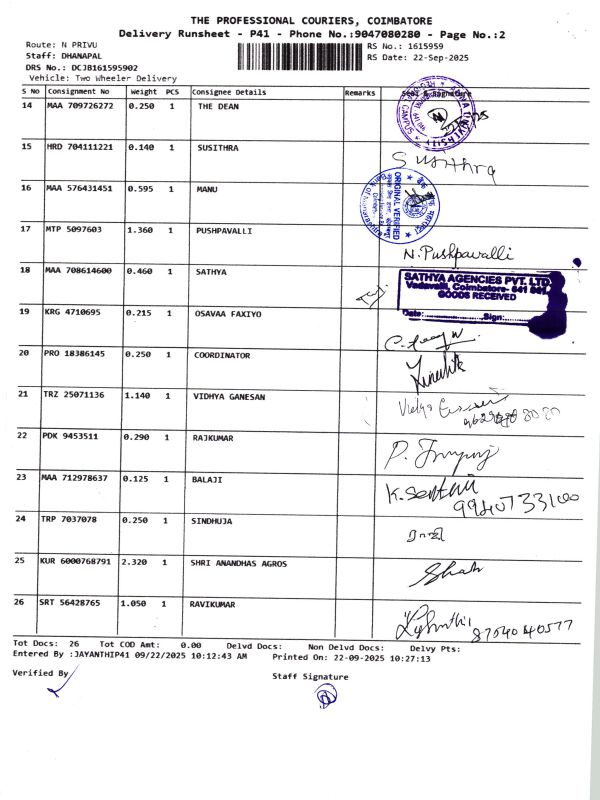 THE PROFESSIONAL COURIERS, COIMBATORE
Delivery Runsheet - P41 - Phone No.:9047080280 - Page No.:2
Route: N PRIVU
RS No.: 1615959
Staff: DHANAPAL
RS Date: 22-Sep-2025
DRS No.: DCJB161595902
Vehicle: Two Wheeler Delivery
S No Consignment No Weight PCS Consignee Details Remarks Seal & Signature
14 MAA 709726272 0.250 1 THE DEAN
15 HRD 704111221 0.140 1 SUSITHRA Susithra
16 MAA 576431451 0.595 1 MANU
ORIGINAL VERIFIED
17 MTP 5097603 1.360 1 PUSHPAVALLI N. Pushpavalli
18 MAA 708614600 0.460 1 SATHYA
SATHYA AGENCIES PVT. LTD
Vadavalli, Coimbatore- 641 041
GOODS RECEIVED
Date: Sign:
19 KRG 4710695 0.215 1 OSAVAA FAXIYO
20 PRO 18386145 0.250 1 COORDINATOR
21 TRZ 25071136 1.140 1 VIDHYA GANESAN
22 PDK 9453511 0.290 1 RAJKUMAR
23 MAA 712978637 0.125 1 BALAJI K. Senthil
24 TRP 7037078 0.250 1 SINDHUJA
25 KUR 6000768791 2.320 1 SHRI ANANDHAS AGROS
26 SRT 56428765 1.050 1 RAVIKUMAR 87540 40577
Tot Docs: 26 Tot COD Amt: 0.00 Delvd Docs: Non Delvd Docs: Delvy Pts:
Entered By :JAYANTHIP41 09/22/2025 10:12:43 AM Printed On: 22-09-2025 10:27:13
Verified By
Staff Signature